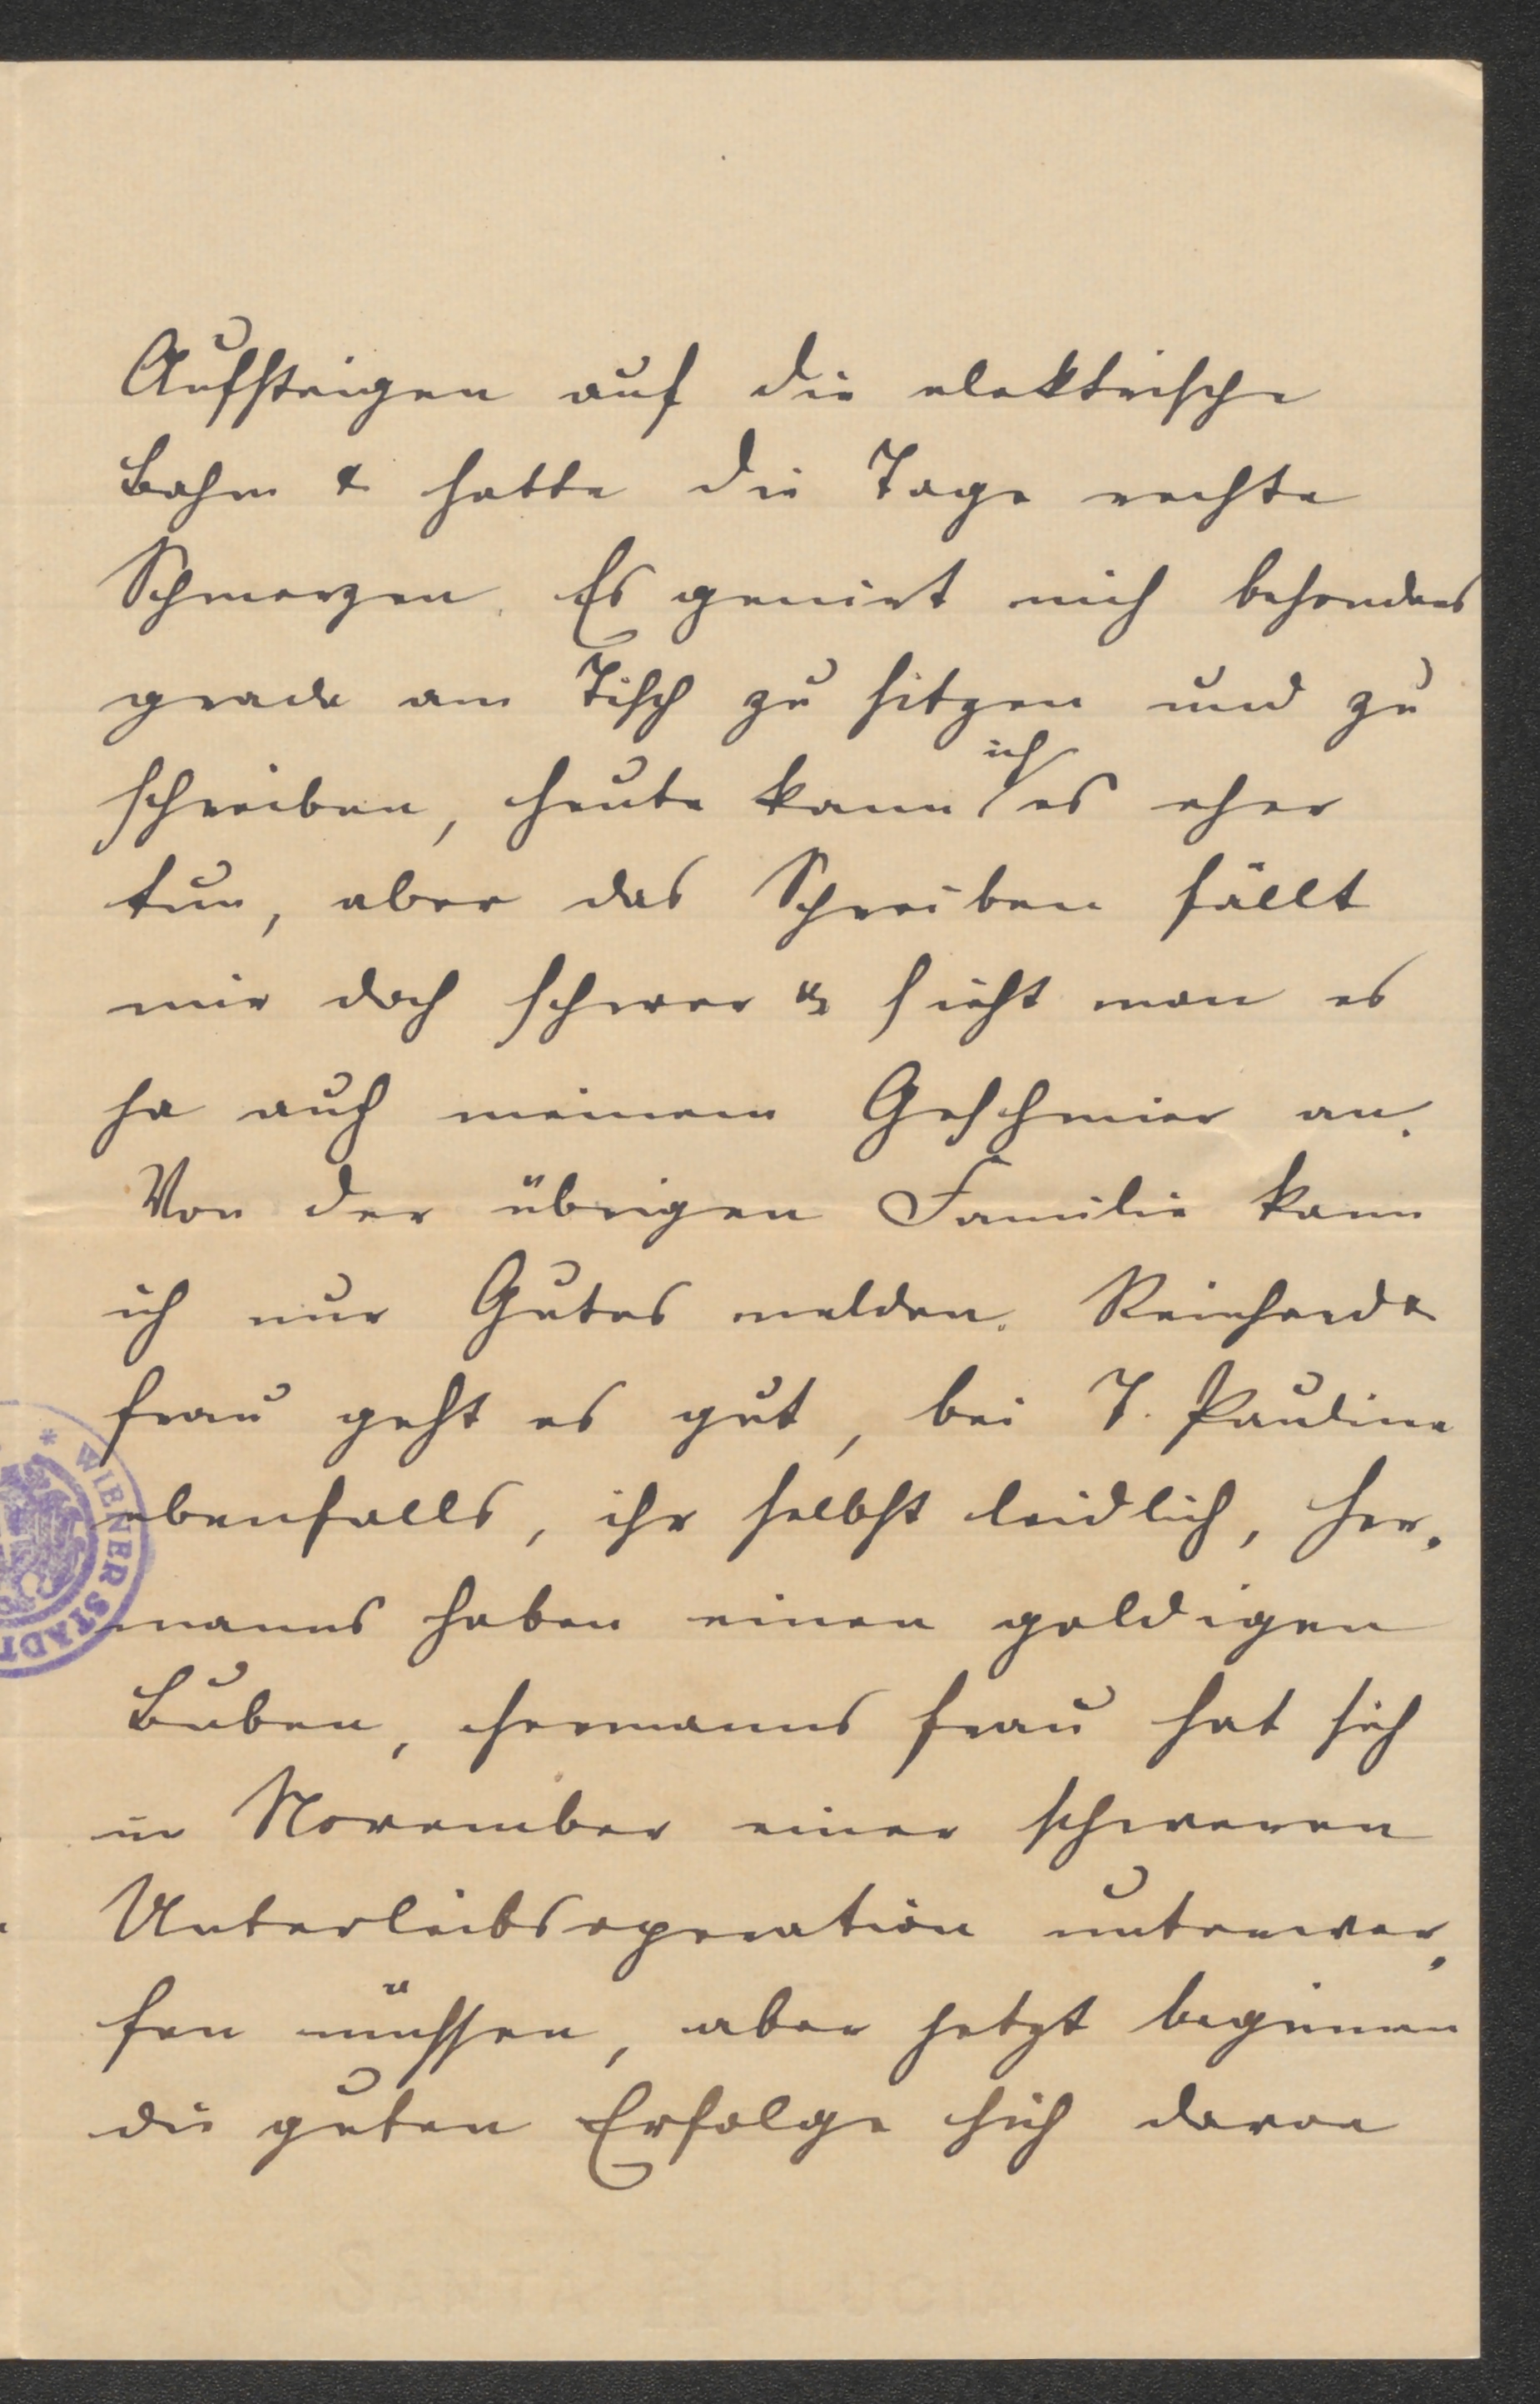 Aufsteigen auf die elektrische
Bahn & hatte die Tage rechte
Schmerzen. Es genirt mich besonders
grade am Tisch zu sitzen und zu
schreiben, heute kann ich es eher
tun, aber das Schreiben fällt
mir doch schwer & sieht man es
ja auch meinem Geschmier an.
Von der übrigen Familie kann
ich nur Gutes melden. Reinhard &
Frau geht es gut, bei T. Pauline
ebenfalls, ihr selbst leidlich, Her-
manns haben einen goldigen
Buben, Hermanns Frau hat sich
in November einer schweren
Unterleibsoperation unterwer-
fen müssen, aber jetzt beginnen
die guten Erfolge sich davon
* WIENER STADT